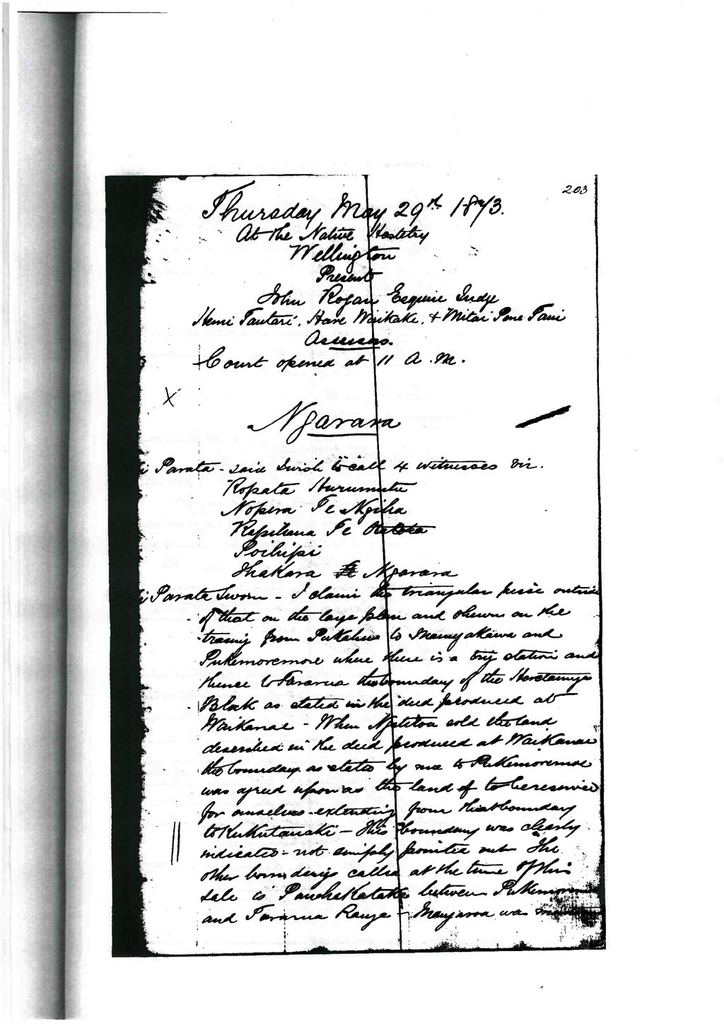 203
Thursday May 29th 1873.
At the Native Hostelry
Wellington
Present
John Rogan Esquire Judge
Hemi Tautari, Hare Wirikake, & Mitai Pene Taui
Assessors.
Court opened at 11 A.M.
X
Ngarara
Parata - said I wish to call 4 witnesses viz.
Ropata Hurumutu
Nopera Te Ngiha
Te
Poihipi
Ihakara Ngarara
Parata Sworn - I claim the triangular piece outside
of that on the large plan and shewn on the
tracing from Pukehou to and
Pukemoremore where there is a trig station and
thence to Tararua the boundary of the
Block as stated in the deed produced at
Waikanae - When Ngatitoa sold the land
described in the deed produced at Waikanae
the boundary as stated by me to Pukemoremore
was agreed upon as the land of to be reserved
for ourselves extending from that boundary
to Kukutauaki - This boundary was clearly
indicated - not simply pointed out The
other boundary called at the time of this
sale is between
and Tararua Range - was